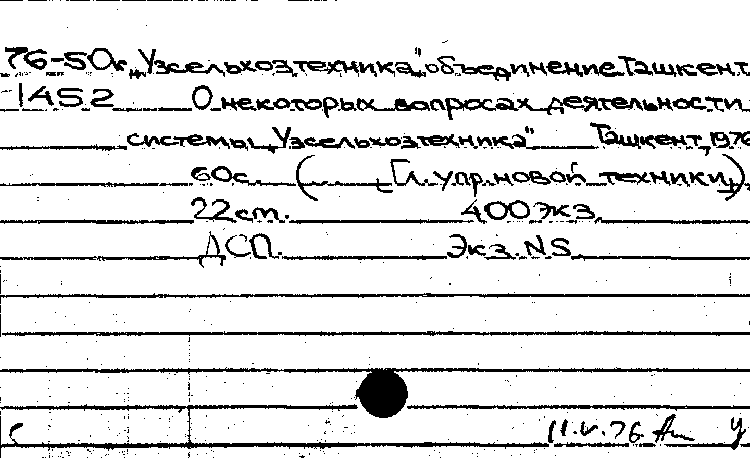 76-50к „Узсельхозтехника", объединение. Ташкент.
1452 О некоторых вопросах деятельности
системы „Узсельхозтехника" Ташкент, 1976
60с. ( Гл. упр. новой техники).
22 см. 400 экз.
ДСП. Экз. N5.
11.V.76 У